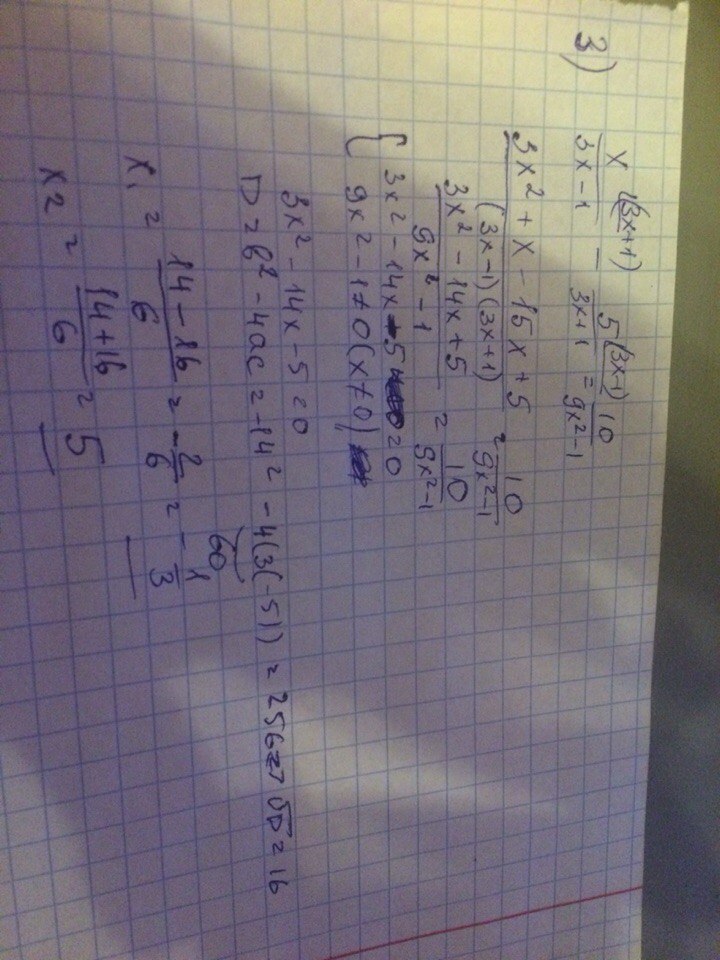 3)
x (3x+1) / 3x-1 - 5 (3x-1) / 3x+1 = 10 / 9x²-1
3x² + x - 15x + 5 / (3x-1)(3x+1) = 10 / 9x²-1
3x² - 14x + 5 / 9x² - 1 = 10 / 9x²-1
{ 3x² - 14x - 5 = 0
9x² - 1 ≠ 0 (x ≠ 0)
3x² - 14x - 5 = 0
D = b² - 4ac = -14² - 4(3(-5)) = 256 => √D = 16
60
x₁ = 14 - 16 / 6 = - 2/6 = - 1/3
x2 = 14 + 16 / 6 = 5